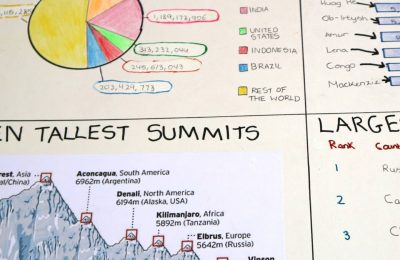 1,189,172,906
313,232,044
245,613,043
203,429,773
INDIA
UNITED
STATES
INDONESIA
BRAZIL
REST OF
THE WORLD
Huang He
Ob-Irtysh
Amur
Lena
Congo
Mackenzie
EN TALLEST SUMMITS
rest, Asia
al/China)
Aconcagua, South America
6962m (Argentina)
Denali, North America
6194m (Alaska, USA)
Kilimanjaro, Africa
5892m (Tanzania)
Elbrus, Europe
5642m (Russia)
Vinson
LARGE
Rank Coun
1 Rus
2 Ca
3 C